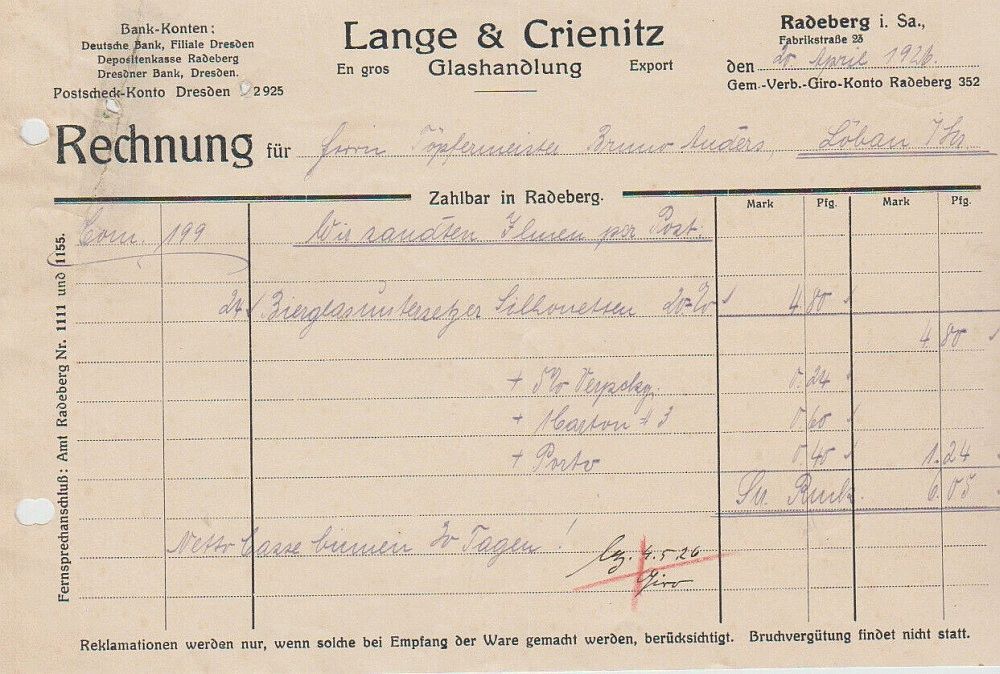 Bank-Konten:
Deutsche Bank, Filiale Dresden
Depositenkasse Radeberg
Dresdner Bank, Dresden.
Postscheck-Konto Dresden 2925
Lange & Crienitz
En gros Glashandlung Export
Radeberg i. Sa.,
Fabrikstraße 23
den 20. April 1926.
Gem.-Verb.-Giro-Konto Radeberg 352
Rechnung für Herrn Töpfermeister Bruno Anders, Löbau
Zahlbar in Radeberg.
Mark Pfg. Mark Pfg.
Com. 199 Wir sandten Ihnen per Post:
24 Bierglasuntersetzer Silhouetten 4.80
4.80
+ 5% Verpckg. 0.24
+ Karton # 3 0.60
+ Porto 0.40 1.24
Rmk. 6.05
Netto Casse binnen 30 Tagen!
bez. 4.5.26
Giro
Fernsprechanschluß: Amt Radeberg Nr. 1111 und 1155.
Reklamationen werden nur, wenn solche bei Empfang der Ware gemacht werden, berücksichtigt. Bruchvergütung findet nicht statt.